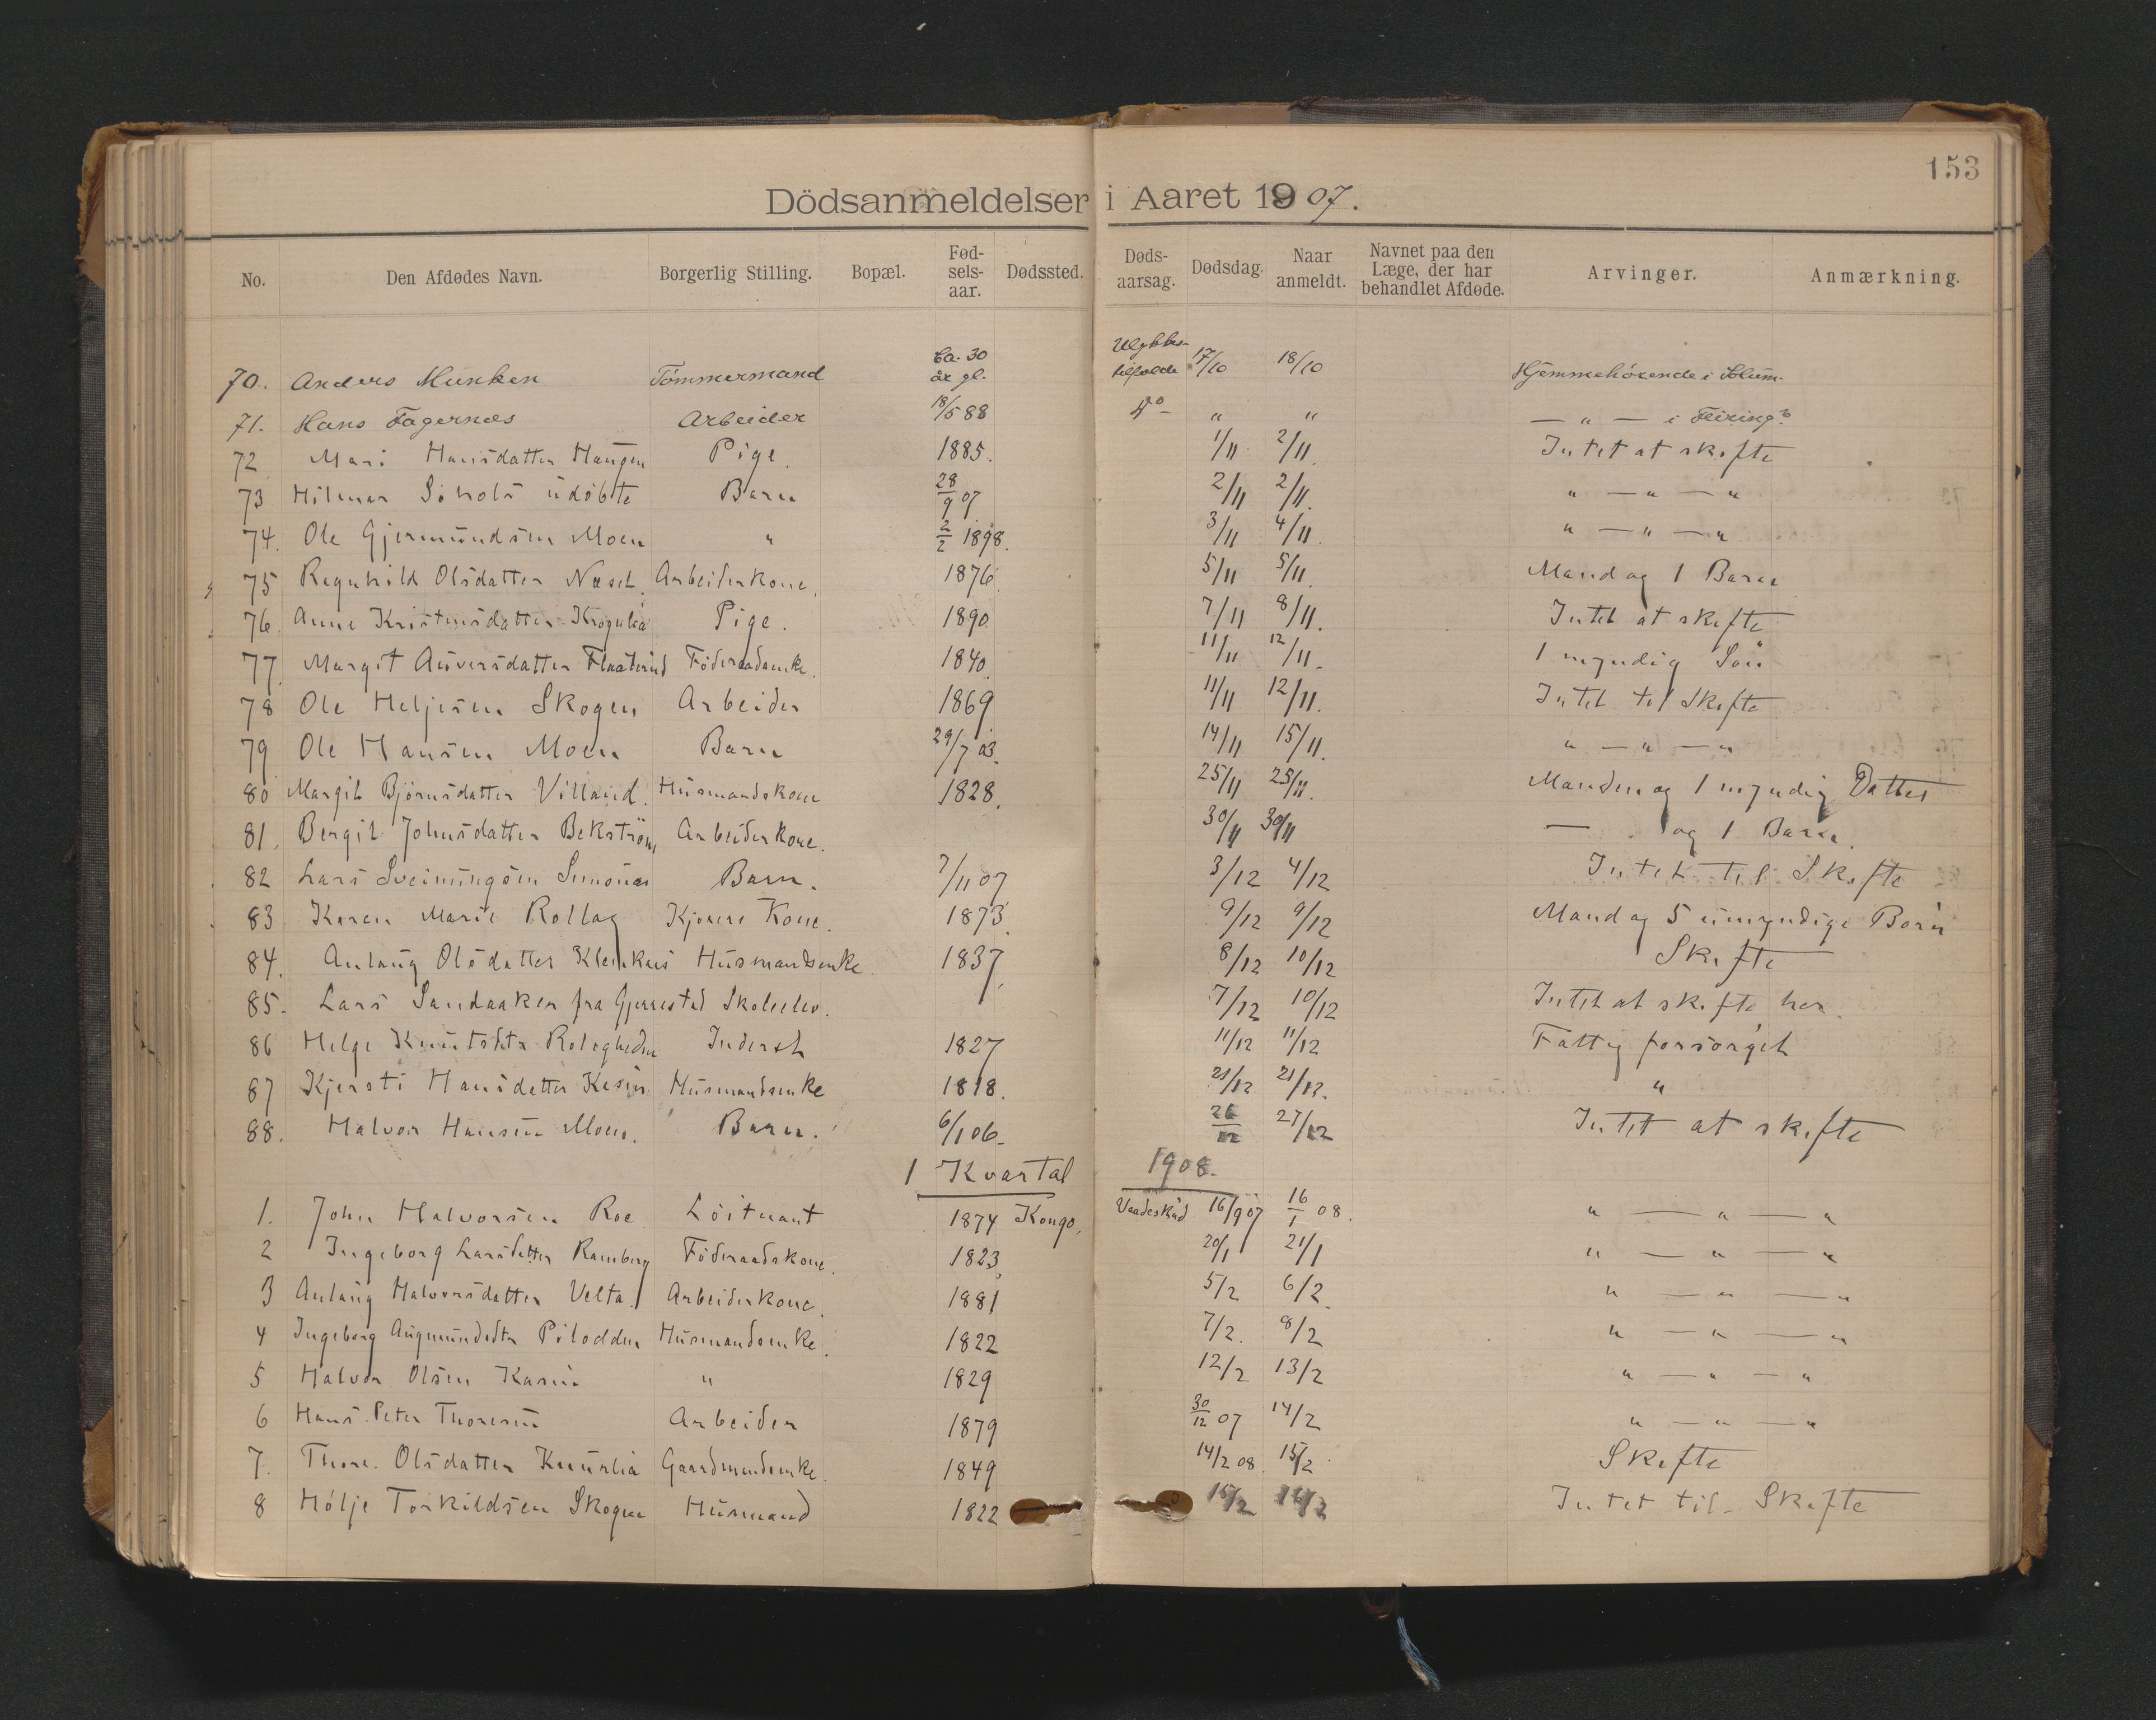 153
Dödsanmeldelser i Aaret 1907.
No. Den Afdødes Navn. Borgerlig Stilling. Bopæl. Fødselsaar. Dødssted. Dødsaarsag. Dødsdag. Naar anmeldt. Navnet paa den Læge, der har behandlet Afdøde. Arvinger. Anmærkning.
70. Anders Munken Tömmermand Ca. 30 år gl. Ulykkestilfælde 17/10 18/10 Hjemmehörende i Solum.
71. Hans Fagernæs Arbeider 18/5 88 Do „ „ — „ — i Feiring?
72 Mari Hansdatter Haugen Pige. 1885. 1/11 2/11. Intet at skifte
73 Hilmar udöbte Barn 28/9 07 2/11 2/11. „ — „ — „
74. Ole Gjermundsen Moen „ 2/2 1898. 3/11 4/11. „ — „ — „
75 Ragnhild Olsdatter Næset. Arbeiderkone. 1876. 5/11 5/11. Mand og 1 Barn
76. Anne Kristensdatter Pige. 1890. 7/11 8/11. Intet at skifte
77. Margit Auversdatter Flaaterud Föderaadsenke. 1840. 11/11 12/11. 1 myndig Sön
78 Ole Heljesen Skogen Arbeider 1869 11/11 12/11. Intet til Skifte
79 Ole Hansen Moen Barn 29/7 03. 14/11 15/11. „ — „ — „
80 Margit Björnsdatter Villand. Husmandskone 1828. 25/11 25/11. Manden og 1 myndig Datter
81. Bergit Johnsdatter Bekström Arbeiderkone. 30/11 30/11 — og 1 Barn.
82 Lars Sveinungsen Barn. 7/11 07 3/12 4/12 Intet til Skifte
83 Karen Marie Rollag Kjörere Kone. 1873. 9/12 9/12 Mand og 5 umyndige Börn
84. Anlaug Olsdatter Husmandsenke 1837. 8/12 10/12 Skifte
85. Lars Sandaaker fra Gjerrestad Skoleelev. 7/12 10/12 Intet at skifte her.
86 Helge Knutsdtr Inderst 1827 11/12 11/12 Fattig forsörget
87 Kjersti Hansdatter Husmandsenke 1818. 21/12 21/12. „
88. Halvor Hansen Moen. Barn. 6/1 06. 26/12 27/12 Intet at skifte
1 Kvartal 1908.
1. John Halvorsen Roe Löitnant 1874 Kongo. Vaadeskud 16/9 07 16/1 08. „ — „ — „
2 Ingeborg Larsdatter Ramberg Föderaadskone. 1823. 20/1 21/1 „ — „ — „
3 Anlaug Halvorsdatter Velta. Arbeiderkone. 1881 5/2 6/2. „ — „ — „
4 Ingeborg Augmundsdtr Pilodden Husmandsenke. 1822 7/2. 8/2 „ — „ — „
5 Halvor Olsen Kasin „ 1829 12/2 13/2 „ — „ — „
6 Hans Peter Thoresen Arbeider 1879 30/12 07 14/2 „ — „ — „
7. Thore Olsdatter Gaardmandsenke. 1849 14/2 08. 15/2 Skifte
8 Hölje Torkildsen Skogen Husmand 1822 15/2 16/2 Intet til Skifte